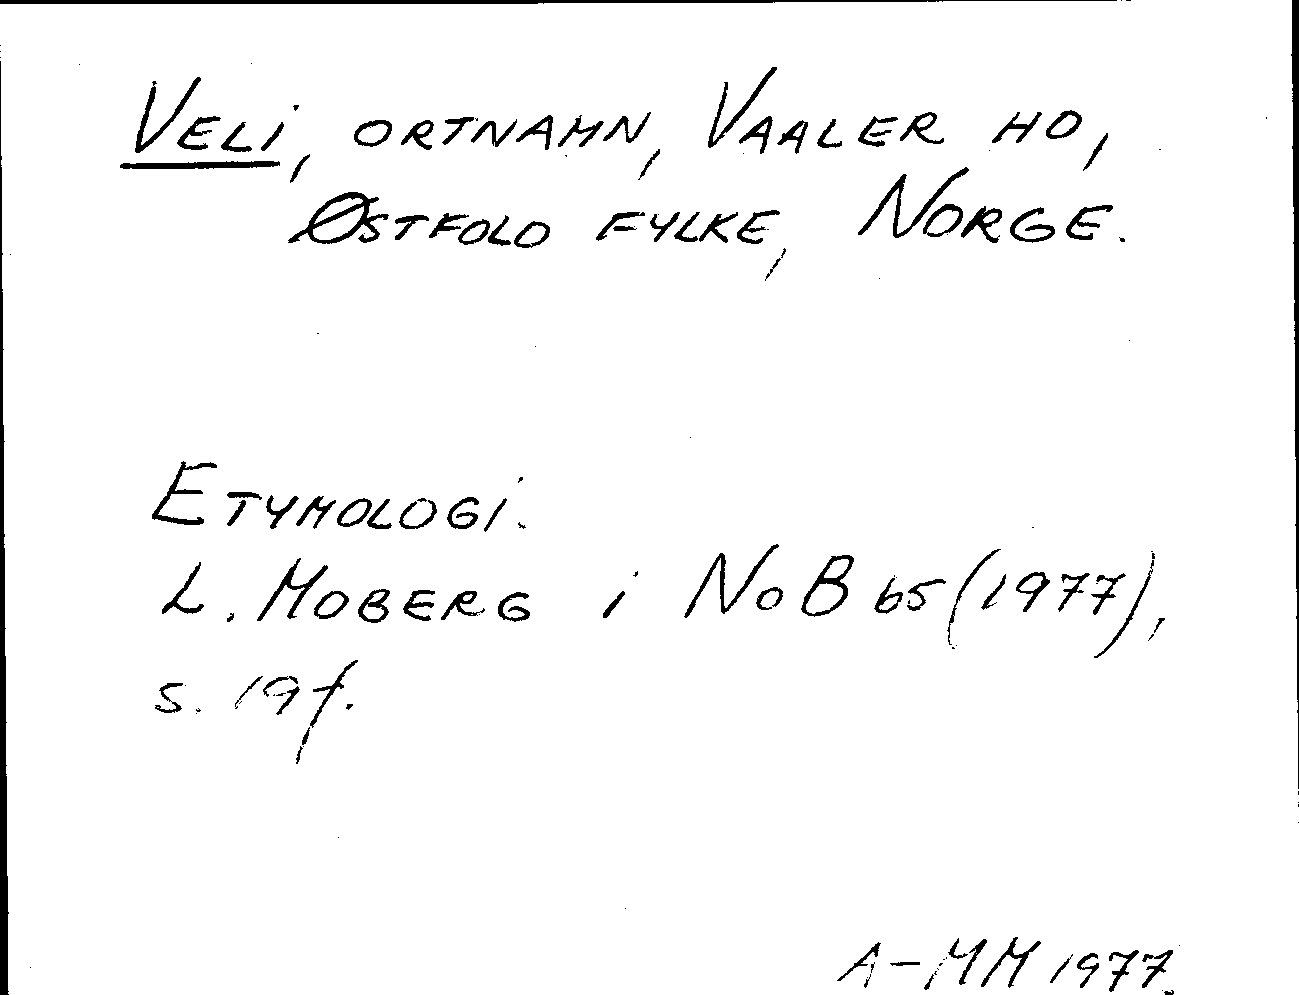 Veli, ortnamn, Vaaler hd,
Østfold fylke, Norge.
Etymologi.
L. Moberg i NoB 65 (1977),
s. 19 f.
A-MM 1977.